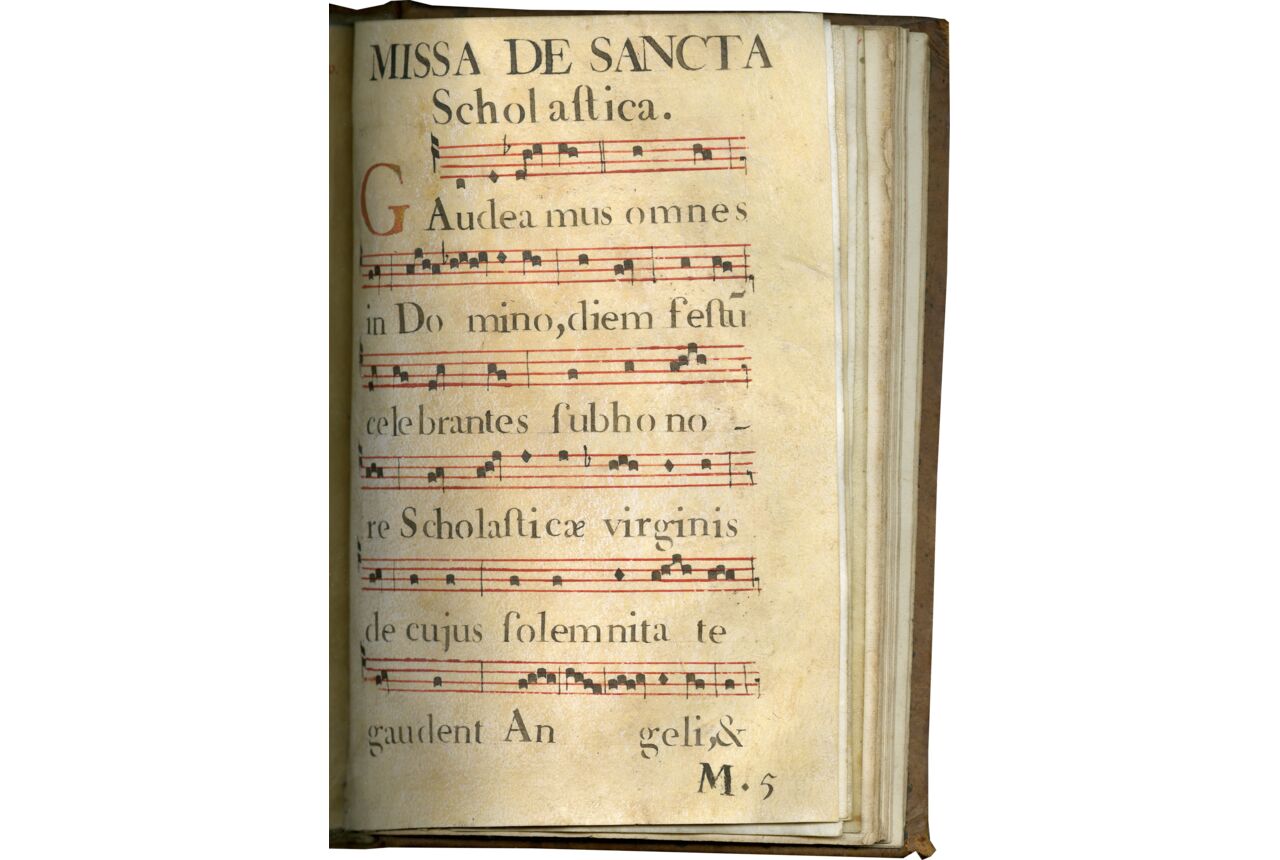 MISSA DE SANCTA
Scholaſtica.
GAudea mus omnes
in Do mino, diem feſtū
celebrantes ſub hono -
re Scholaſticæ virginis
de cujus ſolemnita te
gaudent An geli, &
M. 5